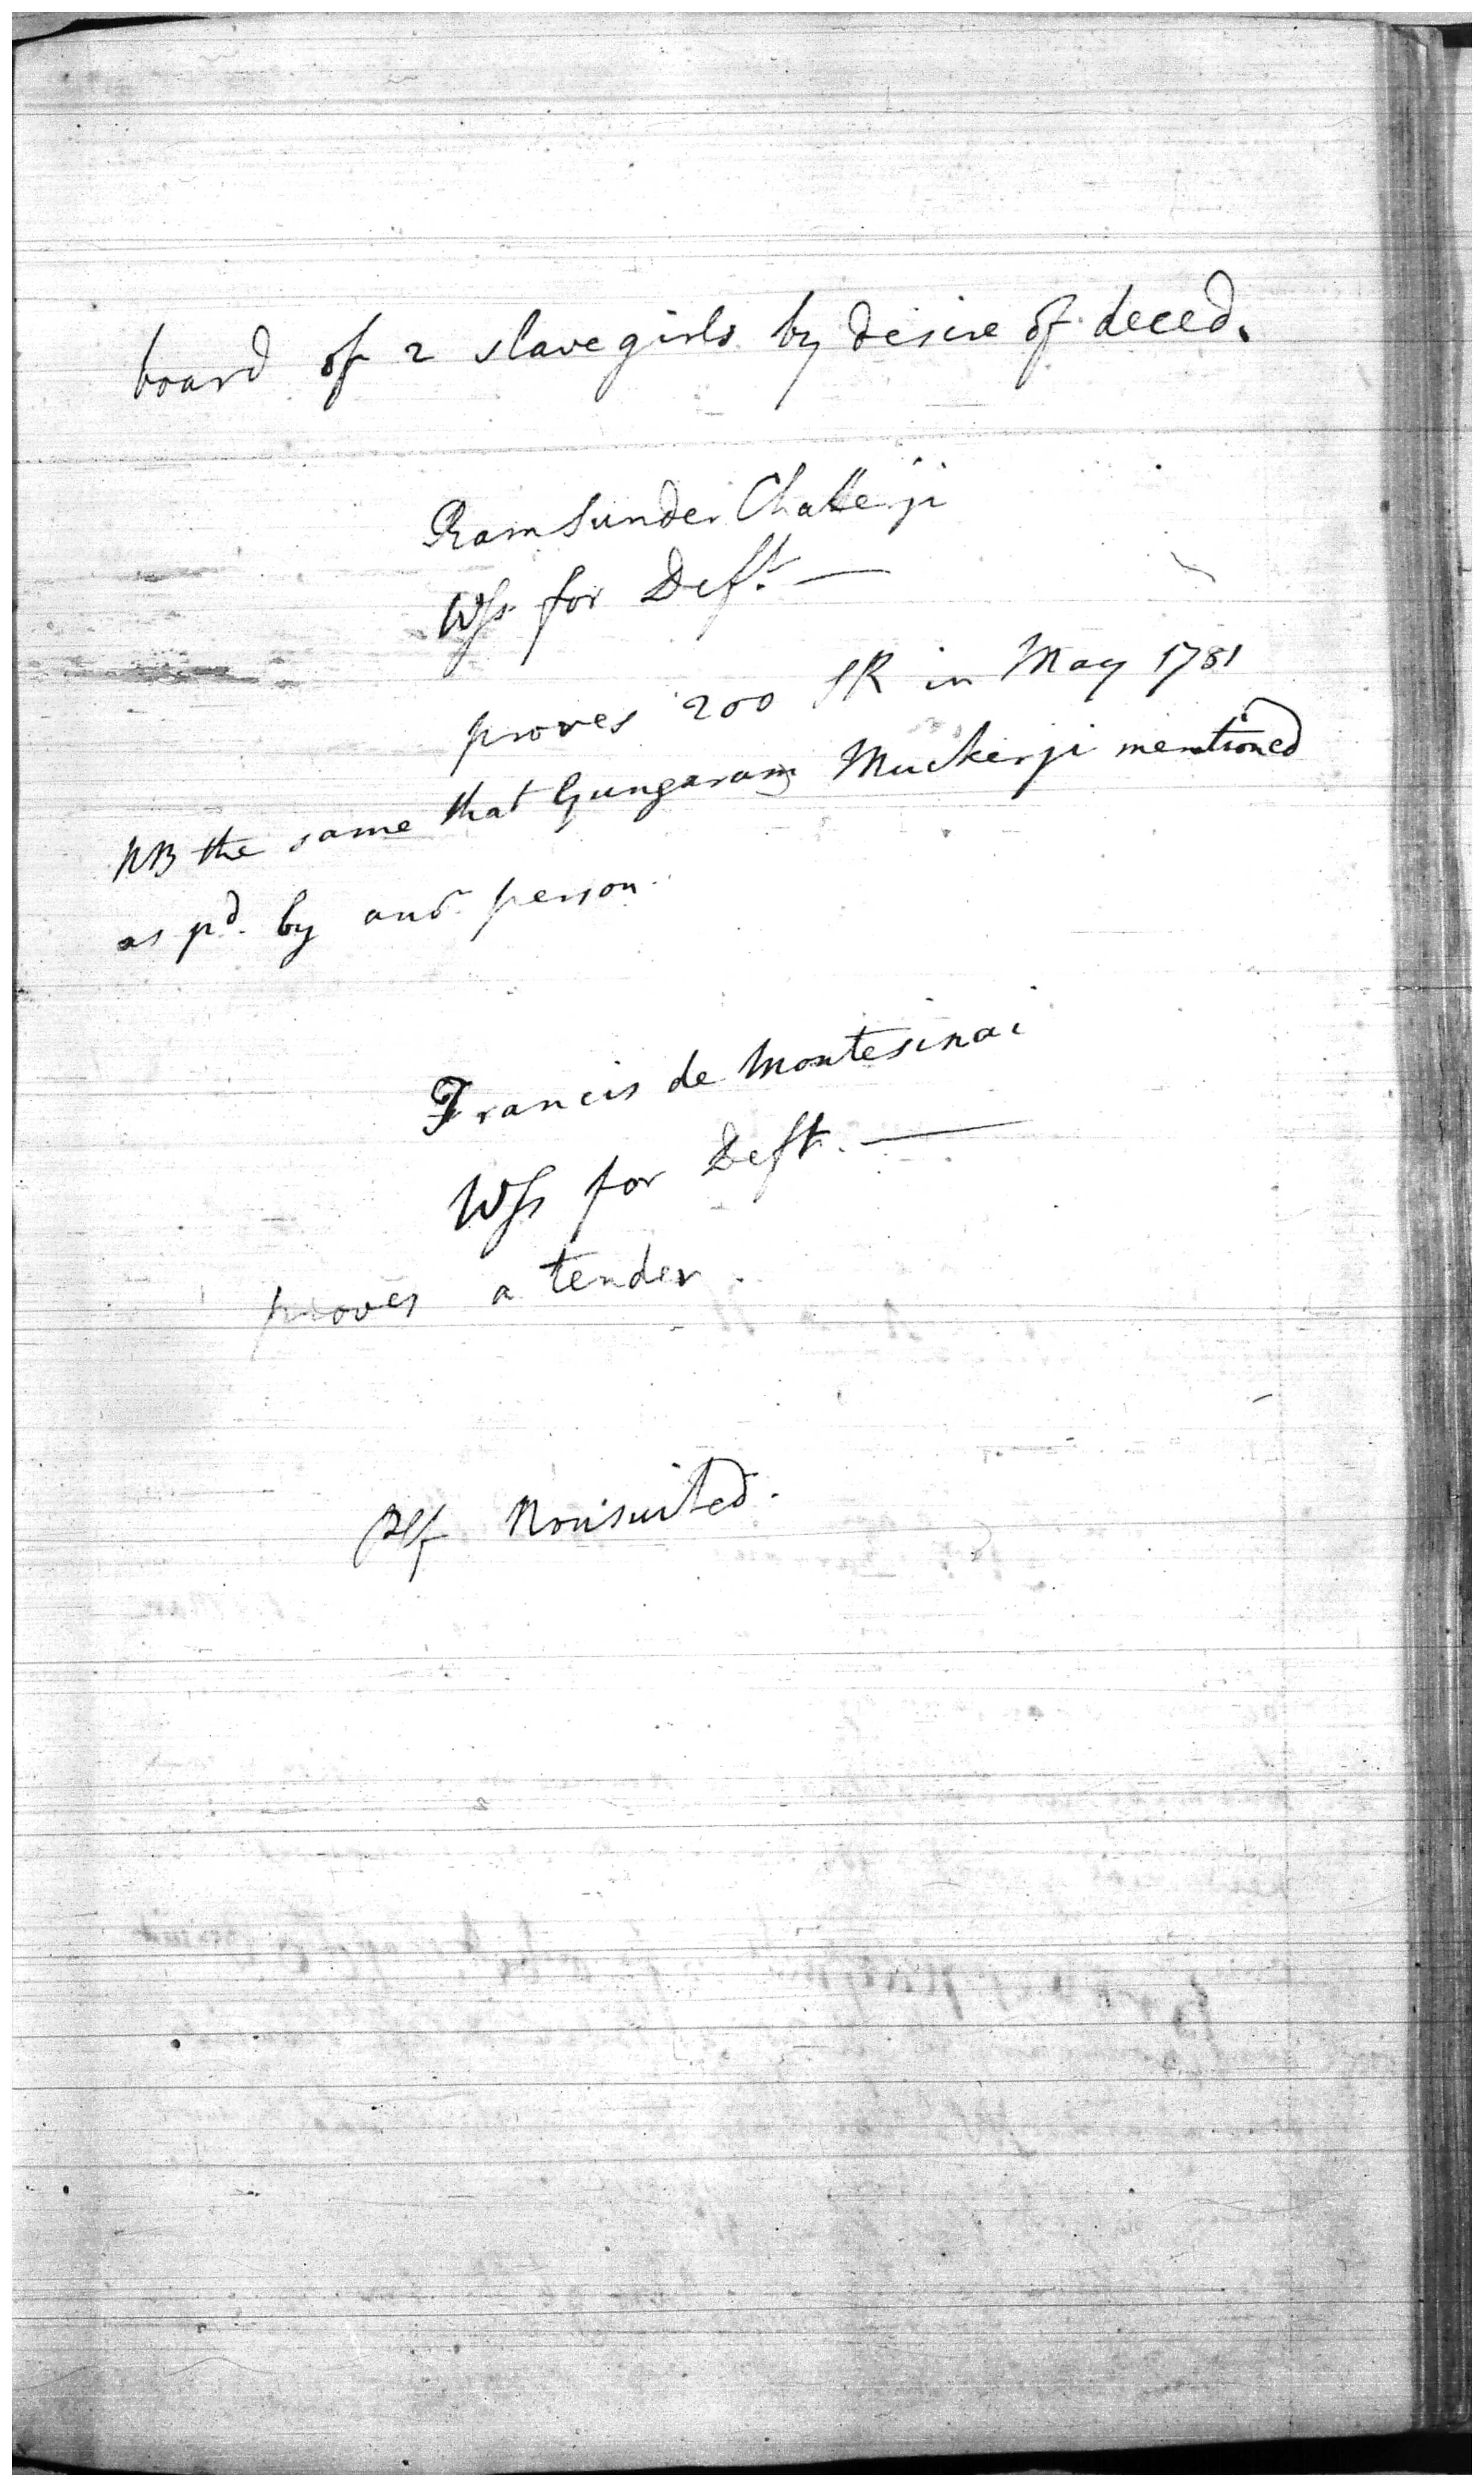 board of 2 slave girls by desire of deced.
Ramsunder Chatterji
Wss for Deft. —
proves 200 SR in May 1781
NB the same that Gungaram Muckerji mentioned
as pd. by anor. person.
Francis de Montesinai
Wss for Deft. —
proves a tender.
Plf Nonsuited.